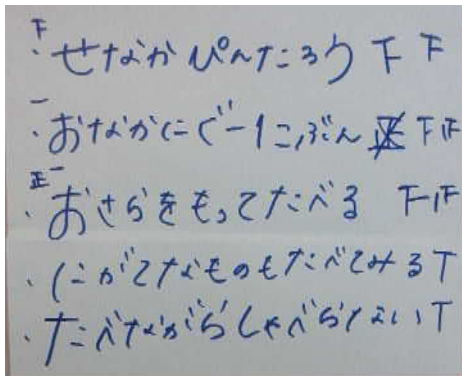 下
・せなかぴんたろう 下 下
一
・おなかにぐー1こぶん 正 下 正
正一
・おさらをもってたべる 下 正
・にがてなものもたべてみる 丅
・たべながらしゃべらない 丅